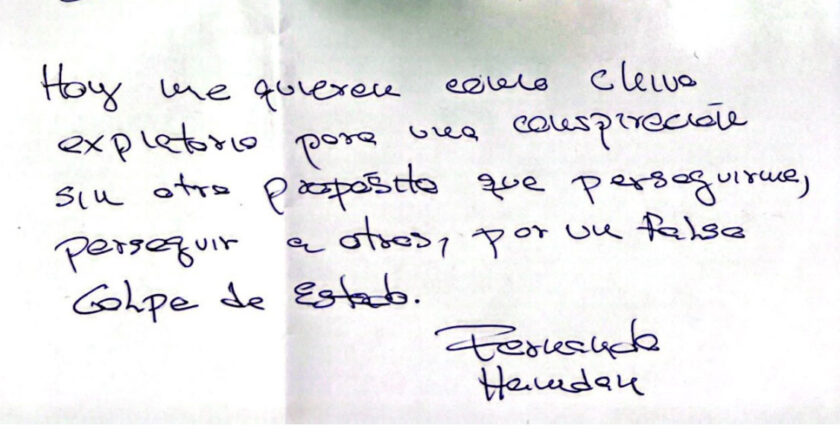 Hoy me quieren como chivo
expiatorio para una conspiración
sin otro propósito que perseguirme,
perseguir a otros, por un falso
Golpe de Estado.
Fernando
Hamdan